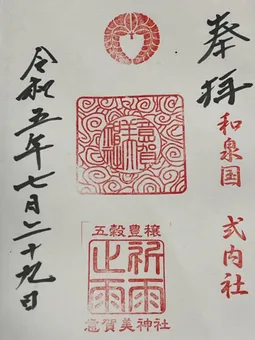 奉拝
和泉国 式内社
五穀豊穣
祈雨
止雨
意賀美神社
令和五年七月二十九日